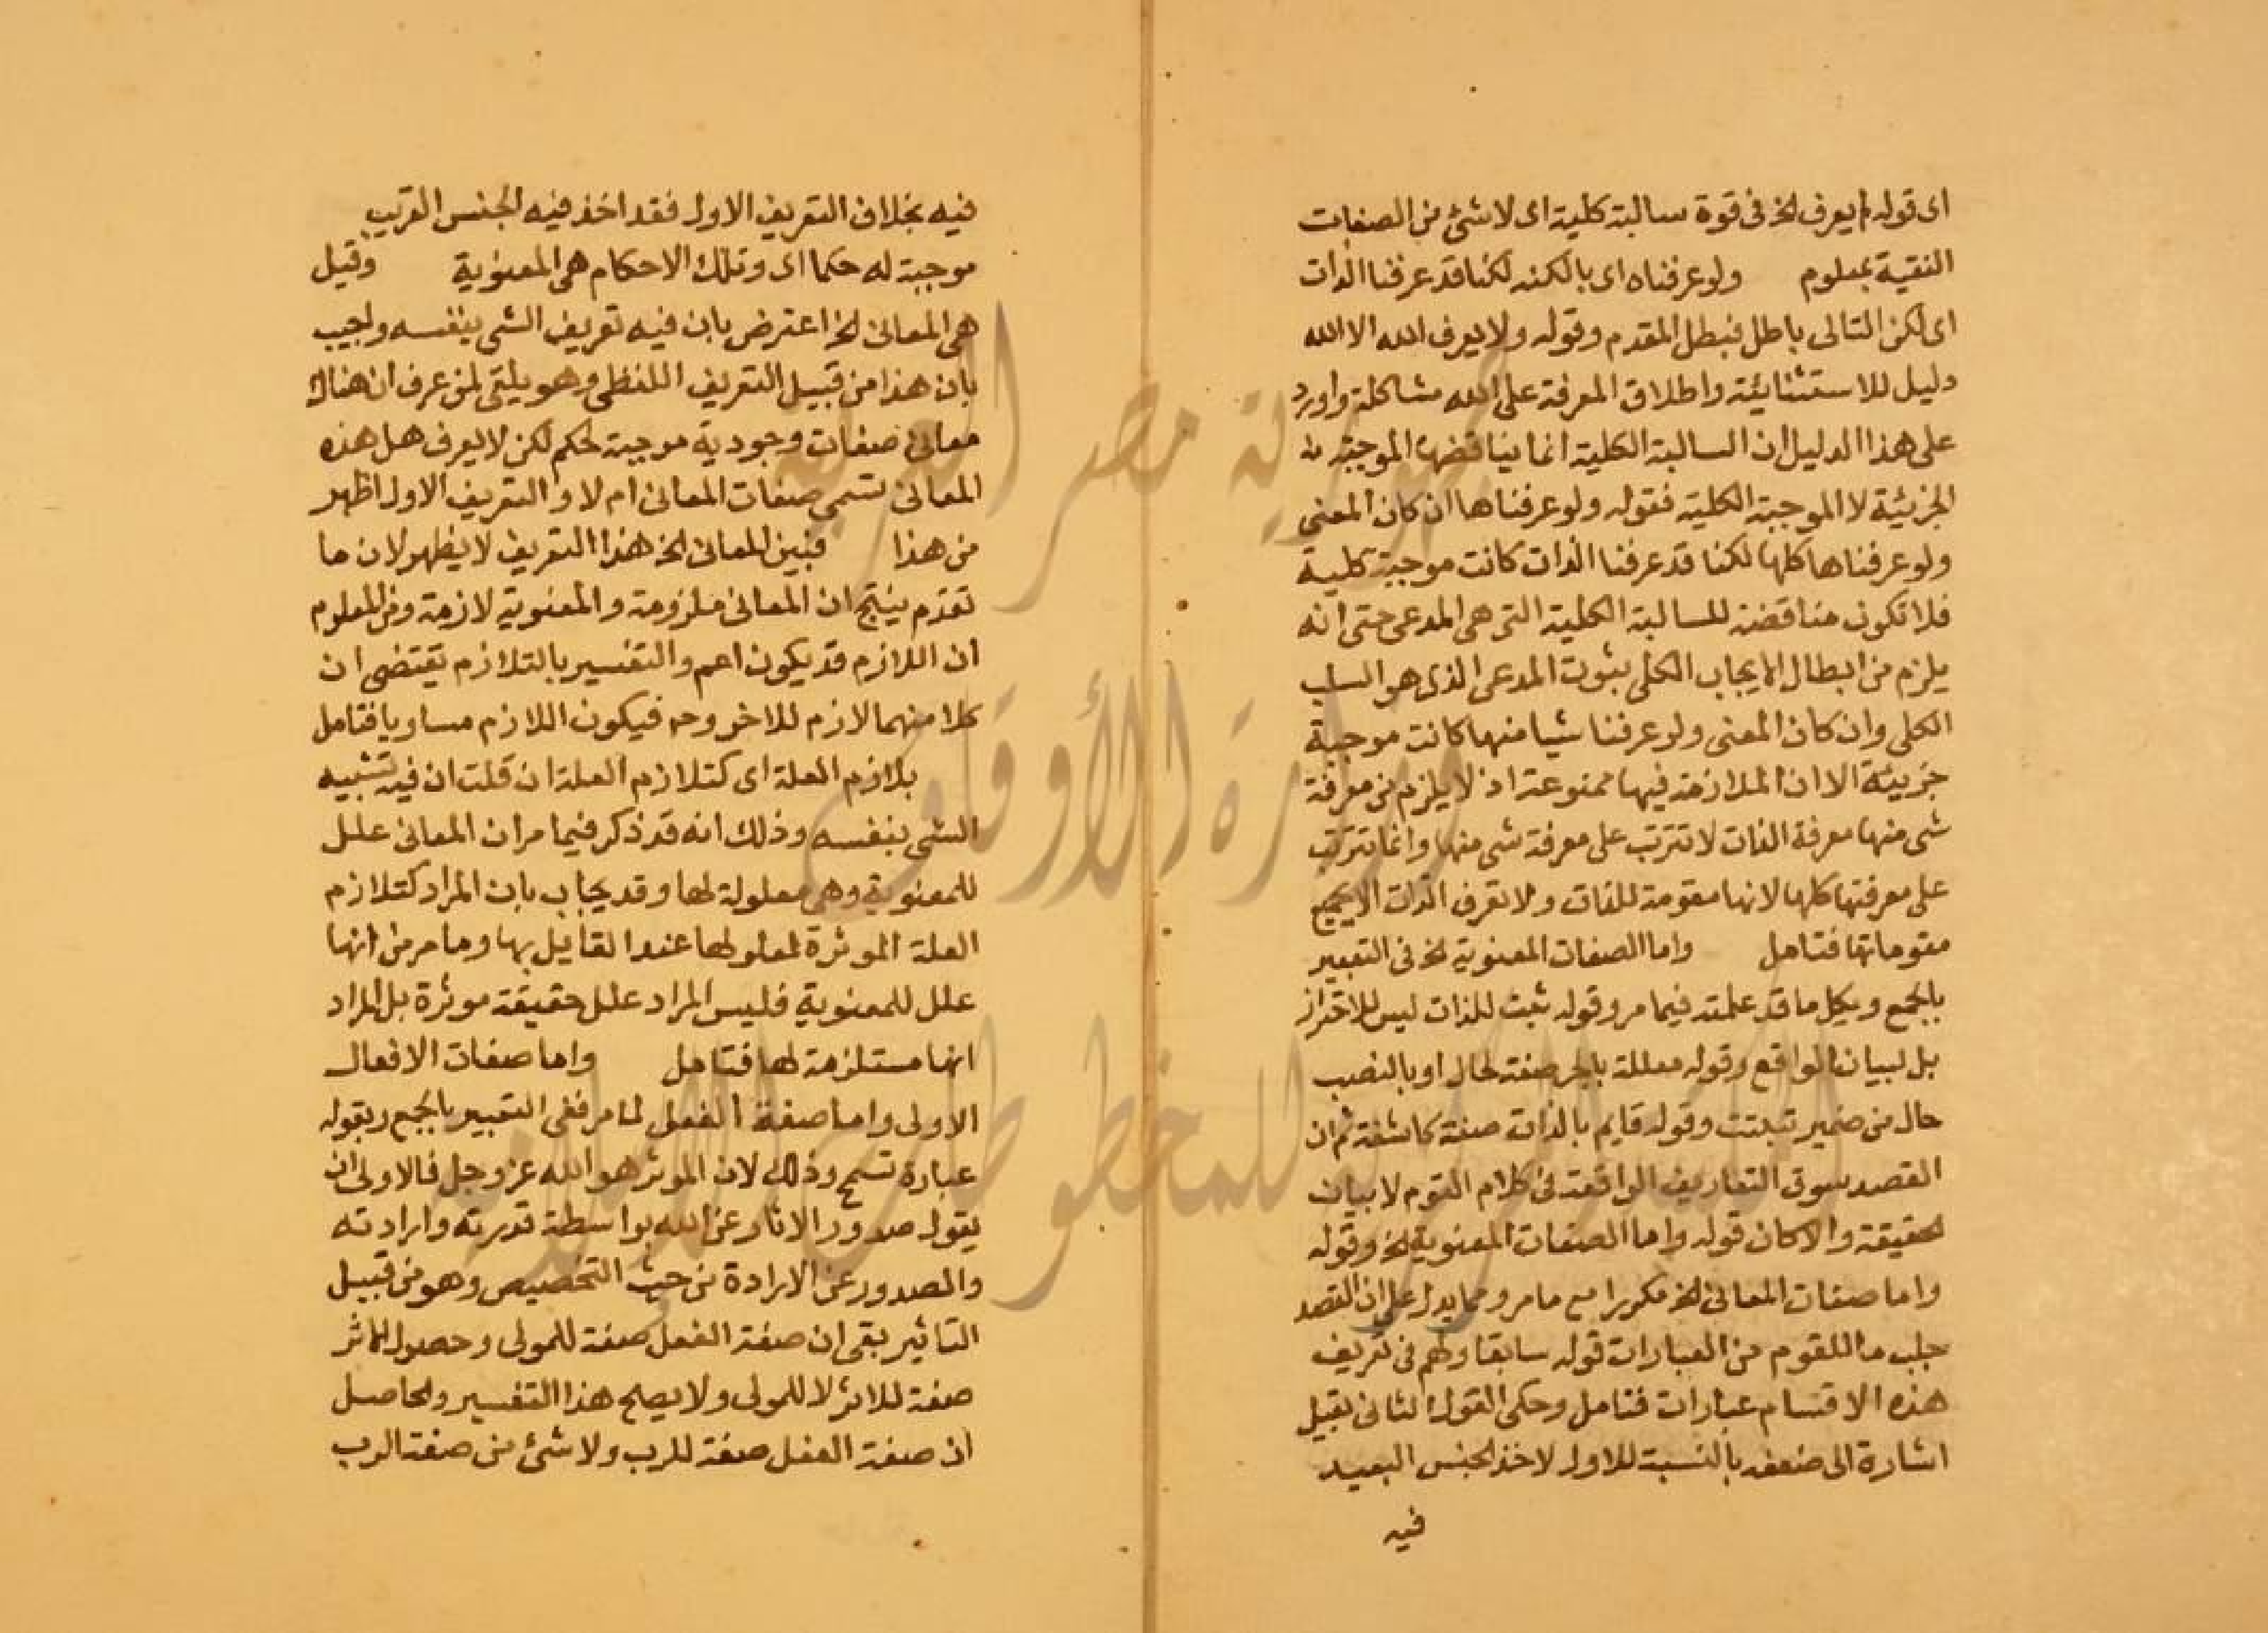 اى قوله لم يعرف الخ فى قوة سالبة كلية اى لا شئ من الصفات
النفسية بمعلوم ولو عرفناه اى بالكنه لكنا قد عرفنا الذات
اى لكن التالى باطل فبطل المقدم وقوله ولا يعرف الله الا الله
دليل للاستثنائية واطلاق المعرفة على الله مشاكلة واورد
على هذا الدليل ان السالبة الكلية انما يناقضها الموجبة
الجزئية لا الموجبة الكلية فقوله ولو عرفناها ان كان المعنى
ولو عرفناها كلها لكنا قد عرفنا الذات كانت موجبة كلية
فلا تكون مناقضة للسالبة الكلية التى هى المدعى حتى انه
يلزم من ابطال الايجاب الكلى بثوت المدعى الذى هو السلب
الكلى وان كان المعنى ولو عرفنا شيا منها كانت موجبة
جزيية الا ان الملازمة فيها ممنوعة اذ لا يلزم من معرفة
شى منها معرفة الذات لا تترتب على معرفة شى منها وانما تترتب
على معرفتها كلها لانها مقومة للذات ولا تعرف الذات الا بجميع
مقوماتها فتامل واما الصفات المعنوية الخ فى التعبير
بالجمع وبكل ما قد علمته فيما مر وقوله ثبت للذات ليس للاحتراز
بل لبيان الواقع وقوله معللة بالجر صفة لحال او بالنصب
حال من ضمير تثبتت وقوله قايم بالذات صفة كاشفة ثم ان
القصد سوق التعاريف الواقعة فى كلام القوم لا بيان
الحقيقة والا كان قوله واما الصفات المعنوية الخ وقوله
واما صفات المعانى الخ مكررا مع ما مر ومما يدل على ان القصد
جلب ما للقوم من العبارات قوله سابقا ولهم فى تعريف
هذه الاقسام عبارات فتامل وحكى القول الثانى بقيل
اشارة الى ضعفه بالنسبة للاول لاخذ الجنس البعيد
فيه
فيه بخلاف التعريف الاول فقد اخذ فيه الجنس القريب
موجبة له حكما اى وتلك الاحكام هى المعنوية وقيل
هى المعانى الخ اعترض بان فيه تعريف الشى بنفسه واجيب
بان هذا من قبيل التعريف اللفظى وهو يلقى لمن عرف ان هناك
معانى صفات وجودية موجبة لحكم لكن لا يعرف هل هذه
المعانى تسمى صفات المعانى ام لا والتعريف الاول اظهر
من هذا فبين المعانى الخ هذا التعريف لا يظهر لان ما
تقدم ينتج ان المعانى ملزومة والمعنوية لازمة ومن المعلوم
ان اللازم قد يكون اعم والتفسير بالتلازم يقتضى ان
كلا منهما لازم للاخر وحه فيكون اللازم مساويا فتامل
بلازم العلة اى كتلازم العلة ان قلت ان فيه تشبيه
الشى بنفسه وذلك انه قد ذكر فيما مر ان المعانى علل
للمعنوية وهى معلولة لها وقد يجاب بان المراد كتلازم
العلة الموثرة لمعلولها عند القايل بها وما مر من انها
علل للمعنوية فليس المراد علل حقيقة موثرة بل المراد
انها مستلزمة لها فتامل واما صفات الافعال
الاولى واما صفة الفعل لما مر ففى التعبير بالجمع وبقوله
عبارة تسمح وذلك لان الموثر هو الله عز وجل فالاولى ان
يقول صدور الاثار عن الله بواسطة قدرته وارادته
والصدور عن الارادة من حيث التخصيص وهو من قبيل
التاثير بقى ان صفة الفعل صفة للمولى وحصول الاثر
صفة للاثر لا للمولى ولا يصلح هذا التفسير والحاصل
ان صفة الفعل صفة للرب ولا شئ من صفة الرب
جمهورية مصر العربية
وزارة الأوقاف